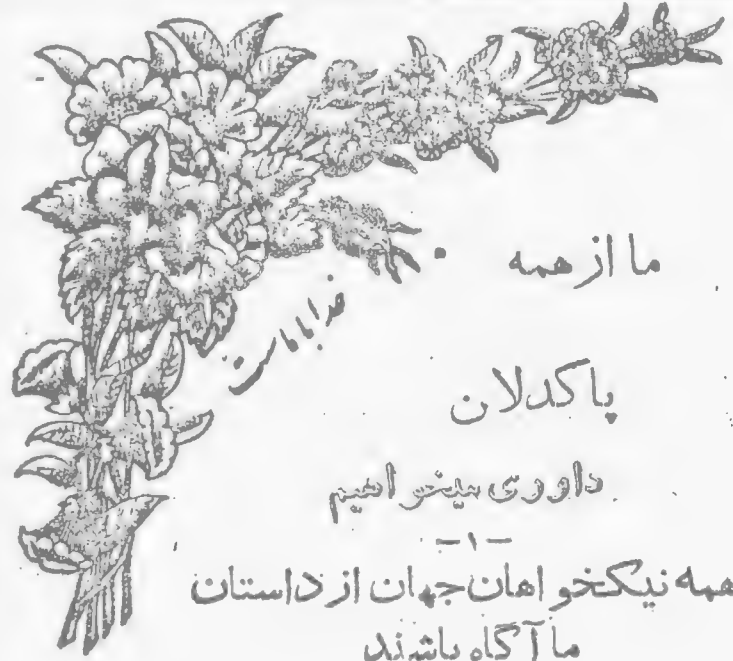 خدا با ماست
ما از همه
پاکدلان
داوری میخواهیم
-۱-
همه نیکخواهان جهان از داستان
ما آگاه باشند